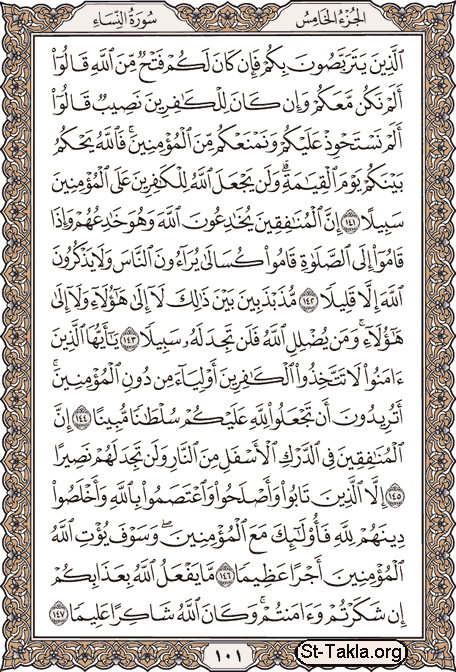 الجزء الخامس
سورة النساء
ٱلَّذِينَ يَتَرَبَّصُونَ بِكُمْ فَإِن كَانَ لَكُمْ فَتْحٌ مِّنَ ٱللَّهِ قَالُوٓا۟
أَلَمْ نَكُن مَّعَكُمْ وَإِن كَانَ لِلْكَٰفِرِينَ نَصِيبٌ قَالُوٓا۟
أَلَمْ نَسْتَحْوِذْ عَلَيْكُمْ وَنَمْنَعْكُم مِّنَ ٱلْمُؤْمِنِينَ ۚ فَٱللَّهُ يَحْكُمُ
بَيْنَكُمْ يَوْمَ ٱلْقِيَٰمَةِ ۗ وَلَن يَجْعَلَ ٱللَّهُ لِلْكَٰفِرِينَ عَلَى ٱلْمُؤْمِنِينَ
سَبِيلًا ١٤١ إِنَّ ٱلْمُنَٰفِقِينَ يُخَٰدِعُونَ ٱللَّهَ وَهُوَ خَٰدِعُهُمْ وَإِذَا
قَامُوٓا۟ إِلَى ٱلصَّلَوٰةِ قَامُوا۟ كُسَالَىٰ يُرَآءُونَ ٱلنَّاسَ وَلَا يَذْكُرُونَ
ٱللَّهَ إِلَّا قَلِيلًا ١٤٢ مُّذَبْذَبِينَ بَيْنَ ذَٰلِكَ لَآ إِلَىٰ هَٰٓؤُلَآءِ وَلَآ إِلَىٰ
هَٰٓؤُلَآءِ ۚ وَمَن يُضْلِلِ ٱللَّهُ فَلَن تَجِدَ لَهُۥ سَبِيلًا ١٤٣ يَٰٓأَيُّهَا ٱلَّذِينَ
ءَامَنُوا۟ لَا تَتَّخِذُوا۟ ٱلْكَٰفِرِينَ أَوْلِيَآءَ مِن دُونِ ٱلْمُؤْمِنِينَ ۚ
أَتُرِيدُونَ أَن تَجْعَلُوا۟ لِلَّهِ عَلَيْكُمْ سُلْطَٰنًا مُّبِينًا ١٤٤ إِنَّ
ٱلْمُنَٰفِقِينَ فِى ٱلدَّرْكِ ٱلْأَسْفَلِ مِنَ ٱلنَّارِ وَلَن تَجِدَ لَهُمْ نَصِيرًا
١٤٥ إِلَّا ٱلَّذِينَ تَابُوا۟ وَأَصْلَحُوا۟ وَٱعْتَصَمُوا۟ بِٱللَّهِ وَأَخْلَصُوا۟
دِينَهُمْ لِلَّهِ فَأُو۟لَٰٓئِكَ مَعَ ٱلْمُؤْمِنِينَ ۖ وَسَوْفَ يُؤْتِ ٱللَّهُ
ٱلْمُؤْمِنِينَ أَجْرًا عَظِيمًا ١٤٦ مَّا يَفْعَلُ ٱللَّهُ بِعَذَابِكُمْ
إِن شَكَرْتُمْ وَءَامَنتُمْ ۚ وَكَانَ ٱللَّهُ شَاكِرًا عَلِيمًا ١٤٧
١٠١
St-Takla.org